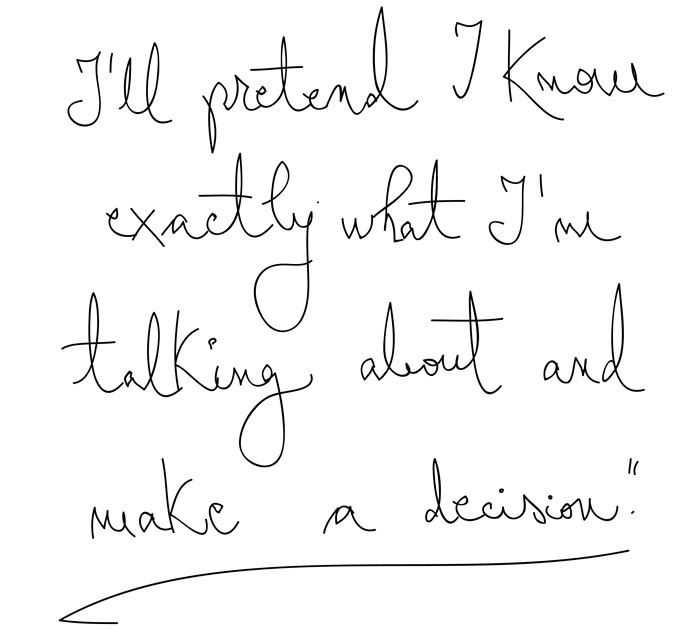 I'll pretend I know
exactly what I'm
talking about and
make a decision."